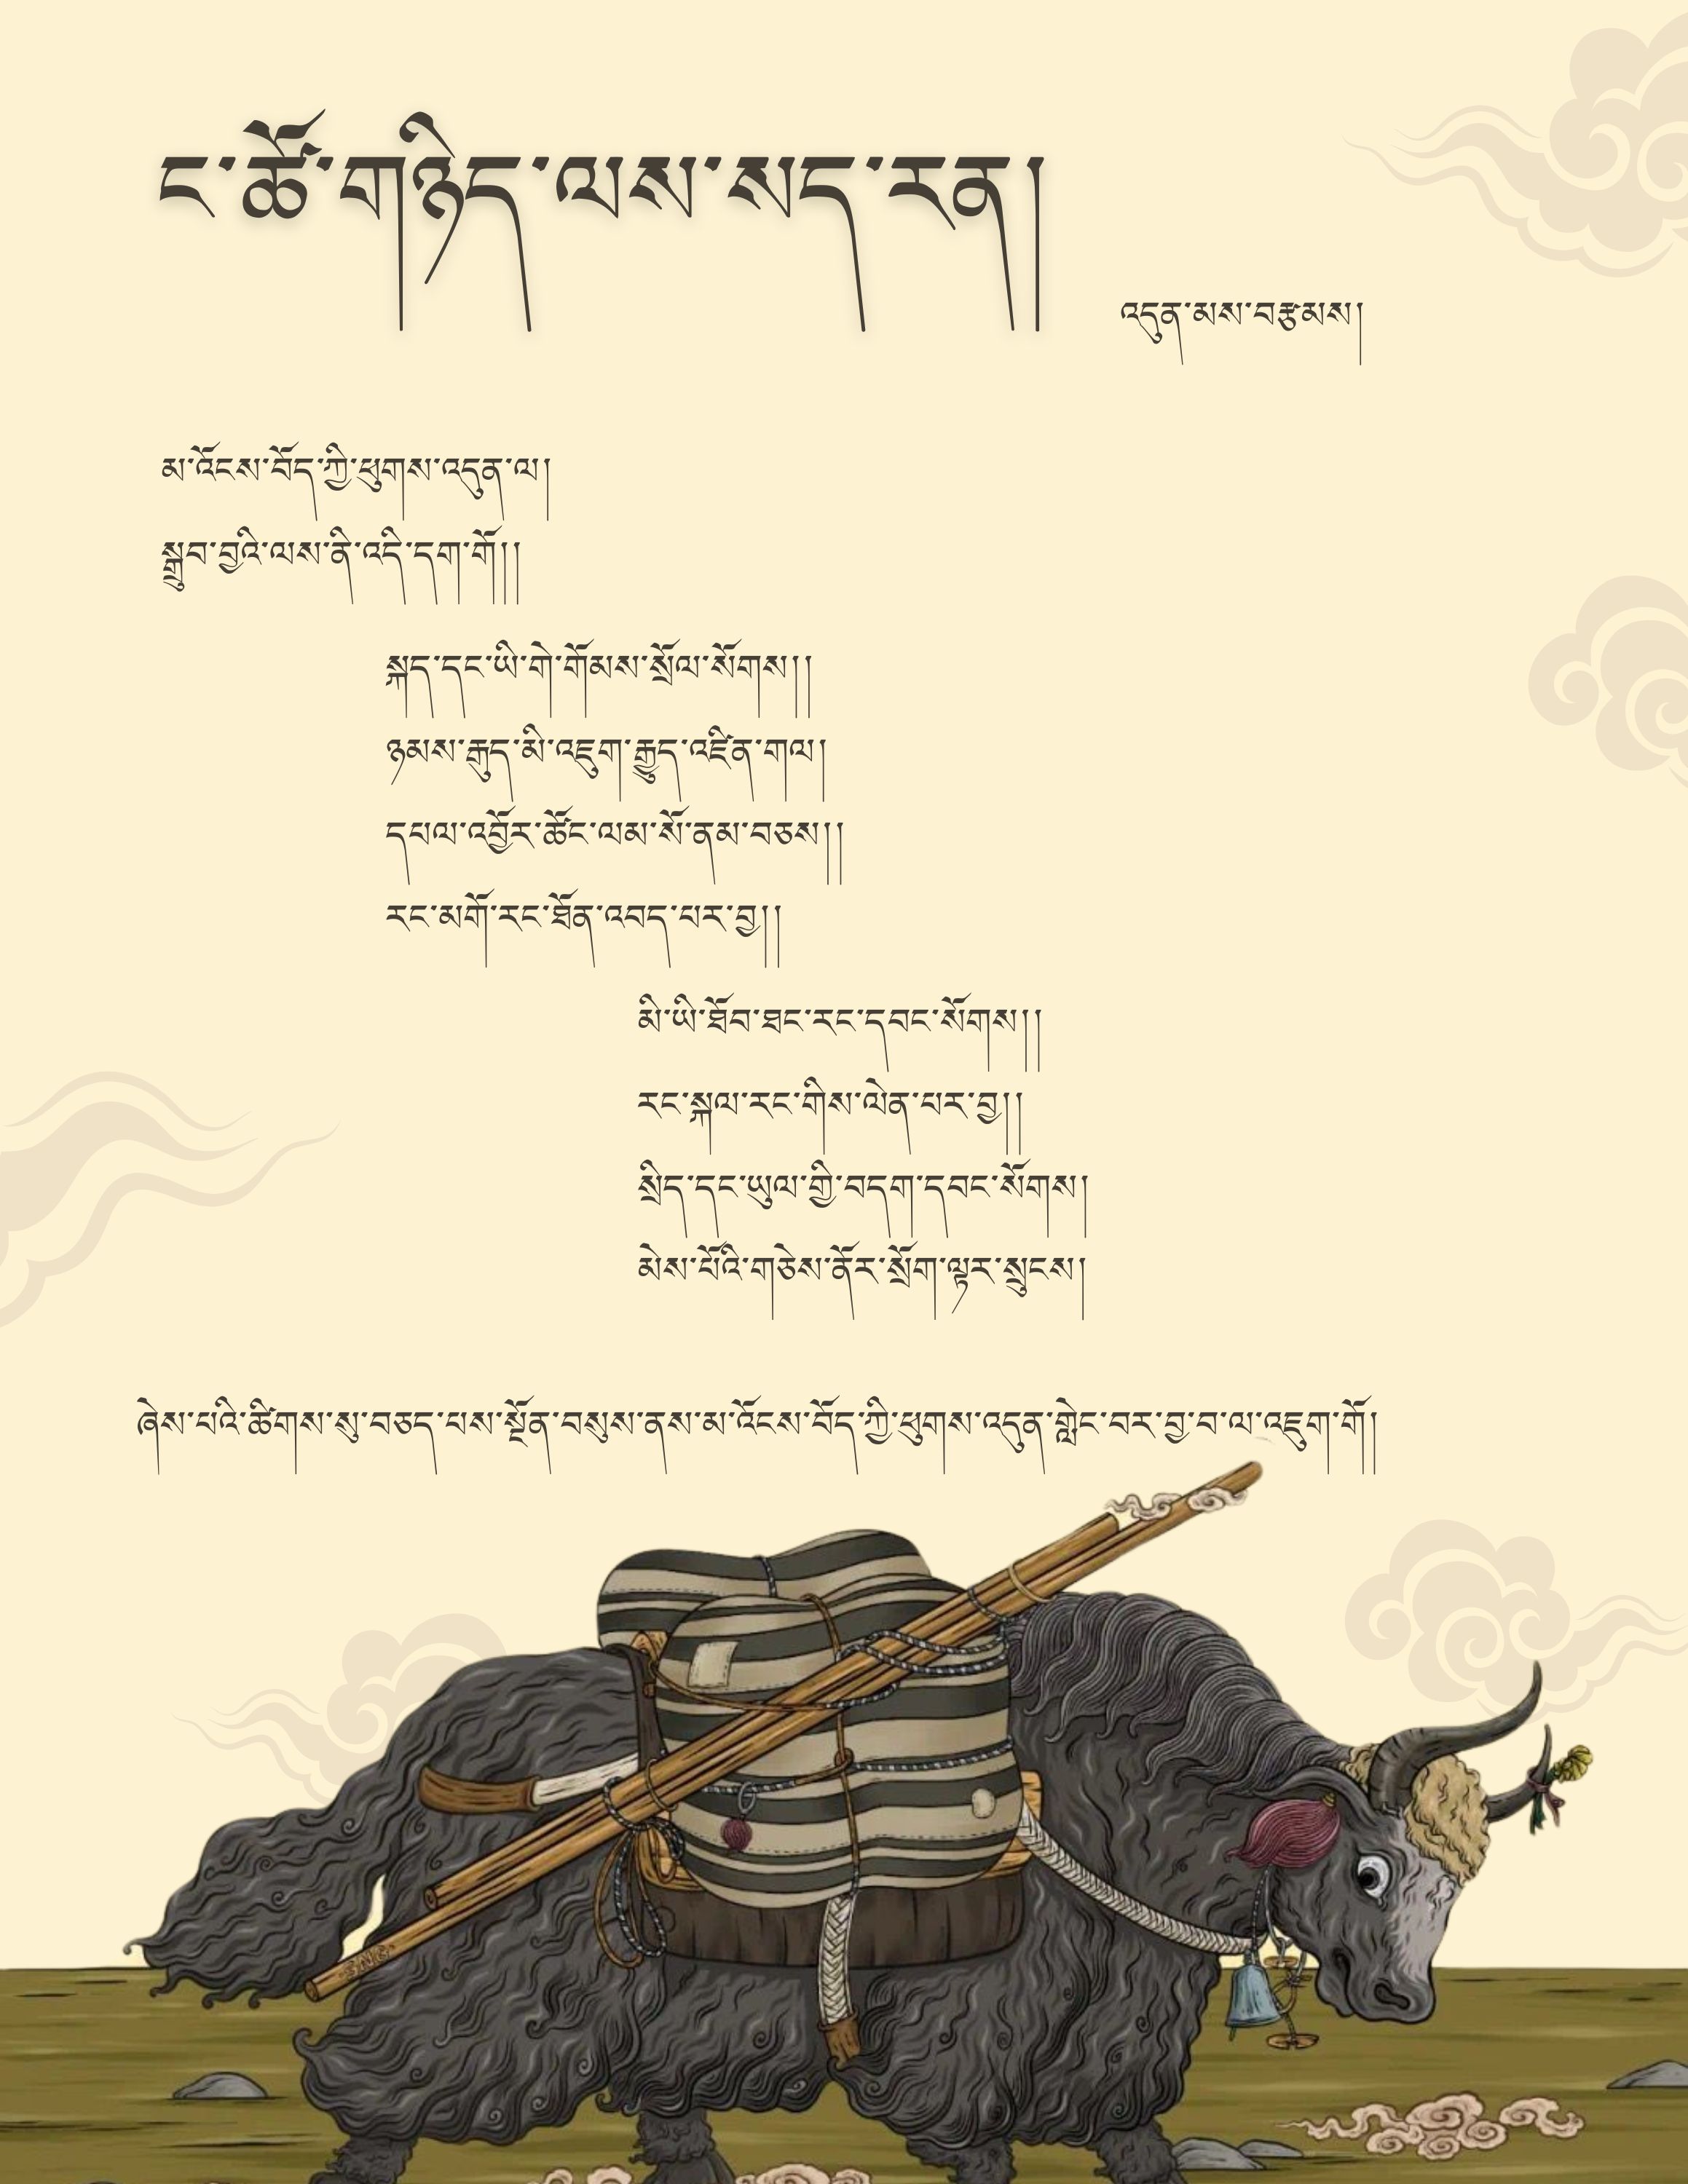 ང་ཚོ་གཉིད་ལས་སད་རན།
འདུན་མས་བརྩམས།
མ་འོངས་བོད་ཀྱི་ཕུགས་འདུན་ལ།
སྒྲུབ་བྱའི་ལས་ནི་འདི་དག་གོ།།
སྐད་དང་ཡི་གེ་གོམས་སྲོལ་སོགས།།
ཉམས་རྒུད་མི་འཇུག་རྒྱུད་འཛིན་གལ།
དཔལ་འབྱོར་ཚོང་ལམ་སོ་ནམ་བཅས།།
རང་མགོ་རང་ཐོན་འབད་པར་བྱ།།
མི་ཡི་ཐོབ་ཐང་རང་དབང་སོགས།།
རང་སྐལ་རང་གིས་ལེན་པར་བྱ།།
སྲིད་དང་ཡུལ་གྱི་བདག་དབང་སོགས།
མེས་པོའི་གཅེས་ནོར་སྲོག་ལྟར་སྲུངས།
ཞེས་པའི་ཚིགས་སུ་བཅད་པས་སྔོན་བསུས་ནས་མ་འོངས་བོད་ཀྱི་ཕུགས་འདུན་གླེང་བར་བྱ་བ་ལ་འཇུག་གོ།